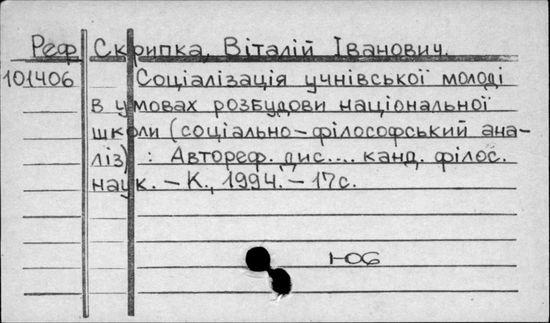 Реф Скрипка, Віталій Іванович.
101406 Соціалізація учнівської молоді
в умовах розбудови національної
школи (соціально-філософський ана-
ліз) : Автореф. дис.... канд. філос.
наук. – К., 1994. – 17с.
Юб